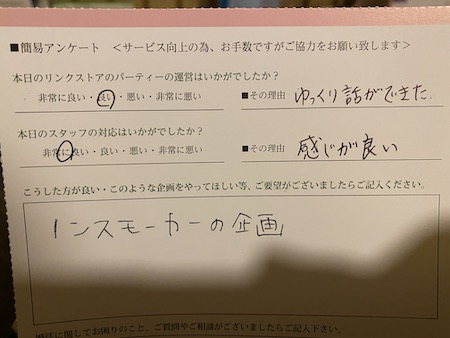 ■簡易アンケート ＜サービス向上の為、お手数ですがご協力をお願い致します＞
本日のリンクストアのパーティーの運営はいかがでしたか？
非常に良い・良い・悪い・非常に悪い ■その理由 ゆっくり話ができた.
本日のスタッフの対応はいかがでしたか？
非常に良い・良い・悪い・非常に悪い ■その理由 感じが良い
こうした方が良い・このような企画をやってほしい等、ご要望がございましたらご記入ください。
ノンスモーカーの企画
婚活に関してお困りのこと、ご質問やご相談がございましたらご記入下さい。